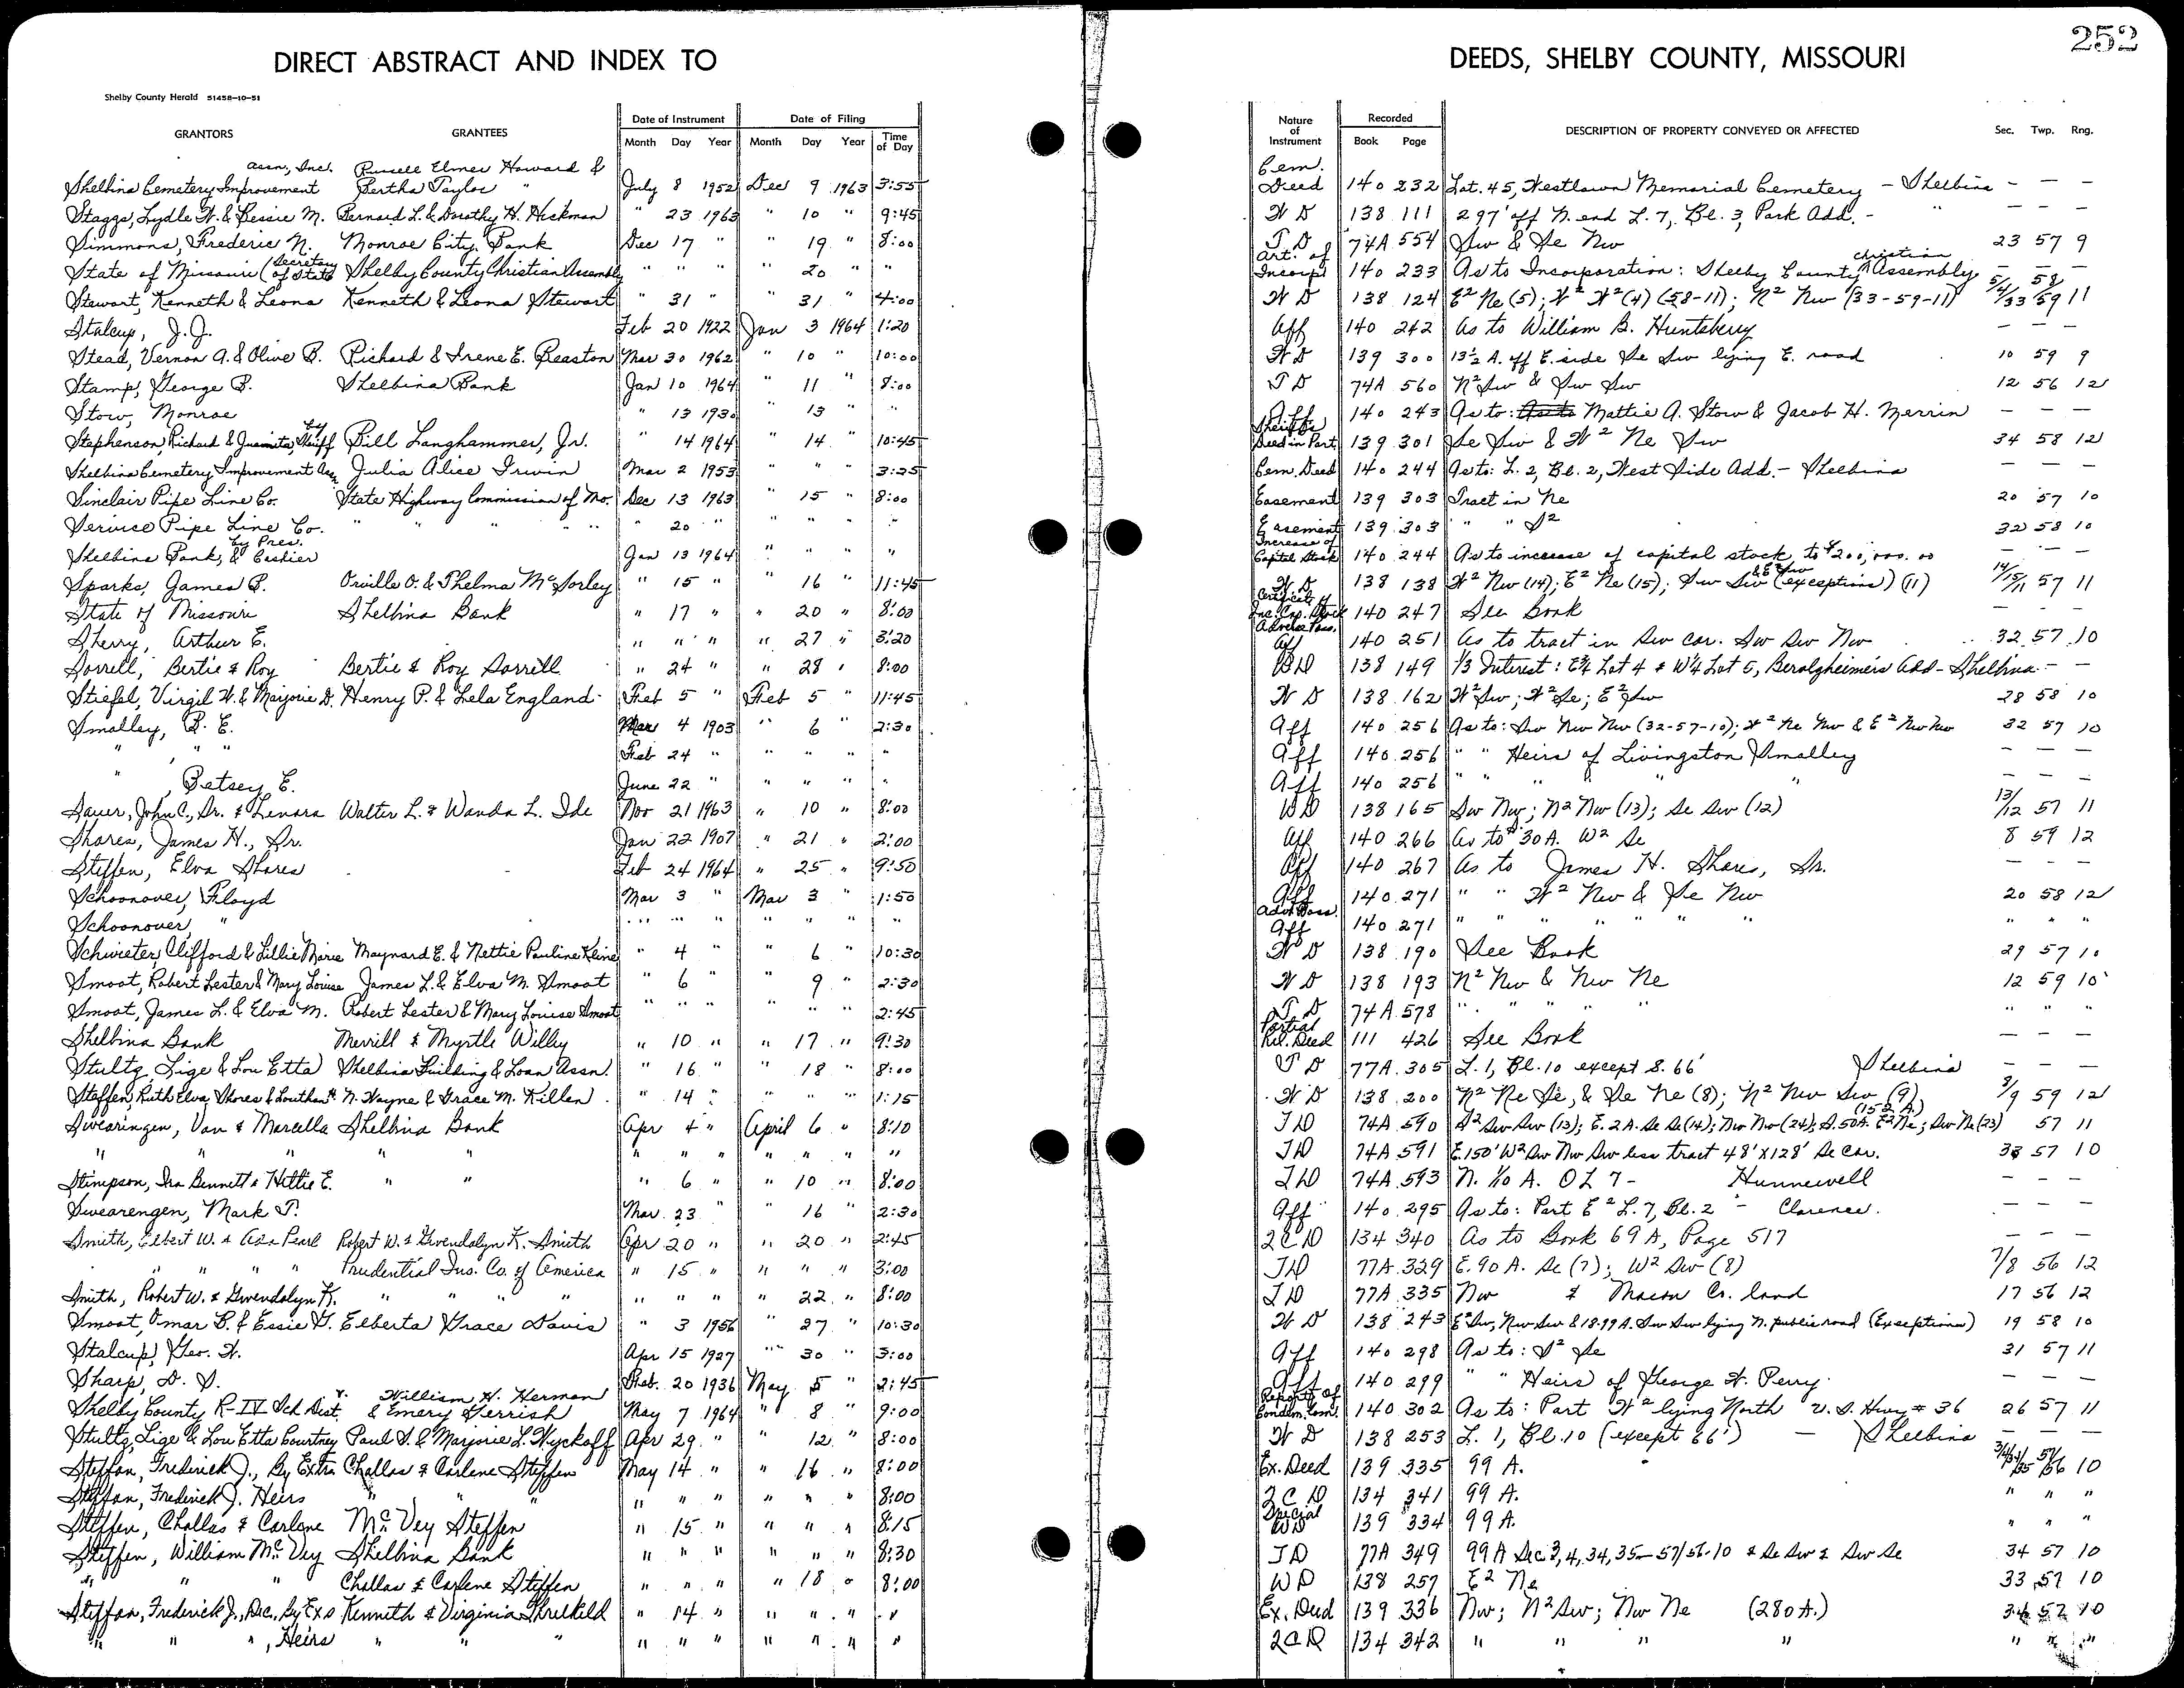 252
DIRECT ABSTRACT AND INDEX TO DEEDS, SHELBY COUNTY, MISSOURI
Shelby County Herald 51458-10-51
GRANTORS GRANTEES Date of Instrument Date of Filing Nature of Instrument Recorded DESCRIPTION OF PROPERTY CONVEYED OR AFFECTED Sec. Twp. Rng.
Month Day Year Month Day Year Time of Day Book Page
Assn, Inc. Russell Elmer Howard & Cem.
Shelbina Cemetery Improvement Bertha Taylor " July 8 1952 Dec 9 1963 3:55 Deed 140 232 Lot. 45, Westlawn Memorial Cemetery - Shelbina - - -
Staggs, Lydle W. & Bessie M. Bernard L. & Dorothy H. Hickman " 23 1963 " 10 " 9:45 W D 138 111 297' off N. end L. 7, Bl. 3, Park Add. - " - - -
Simmons, Frederic N. Monroe City Bank Dec 17 " " 19 " 8:00 T D 74A 554 Sw & Se Nw 23 57 9
State of Missouri (Secretary of State Shelby County Christian Assembly " " " " 20 " " Art. of Incorp't 140 233 As to Incorporation: Shelby County Christian Assembly - - -
Stewart, Kenneth & Leona Kenneth & Leona Stewart " 31 " " 31 " 4:00 W D 138 124 E² Ne (5); W² W² (4) (58-11); N² Nw (33-59-11) 5/4/33 58/59 11
Stalcup, J. J. Feb 20 1922 Jan 3 1964 1:20 Aff 140 242 As to William B. Huntsberry - - -
Stead, Vernon A. & Olive B. Richard & Irene E. Beaston Mar 30 1962 " 10 " 10:00 W D 139 300 13½ A. off E. side Se Sw lying E. road 10 59 9
Stamp, George B. Shelbina Bank Jan 10 1964 " 11 " 8:00 T D 74A 560 N² Sw & Sw Sw 12 56 12
Stow, Monroe " 13 1930 " 13 " " Aff 140 243 As to: As to Mattie A. Stow & Jacob H. Merrin - - -
Stephenson, Richard & Juanita, by Sheriff Bill Langhammer, Jr. " 14 1964 " 14 " 10:45 Sheriff's Deed in Part. 139 301 Se Sw & W² Ne Sw 34 58 12
Shelbina Cemetery Improvement Assn. Julia Alice Irwin Mar 2 1953 " " " 3:25 Cem. Deed 140 244 As to: L. 2, Bl. 2, West Side Add. - Shelbina - - -
Sinclair Pipe Line Co. State Highway Commission of Mo. Dec 13 1963 " 15 " 8:00 Easement 139 303 Tract in Ne 20 57 10
Service Pipe Line Co. " " " " " " 20 " " " " " Easement 139 303 " " S² 32 58 10
Shelbina Bank, by Pres. & Cashier Jan 13 1964 " " " " Increase of Capital Stock 140 244 As to increase of capital stock to $200,000.00 - - -
Sparks, James B. Orville O. & Thelma McSorley " 15 " " 16 " 11:45 W D 138 138 W² Nw (14); E² Ne (15); Sw Sw & E² Sw (exceptions) (11) 14/15/11 57 11
State of Missouri Shelbina Bank " 17 " " 20 " 8:00 Certificate of Inc. Cap. Stock 140 247 See Book - - -
Sherry, Arthur E. " " " " 27 " 3:20 Adverse Poss. Aff 140 251 As to tract in Sw cor. Sw Sw Nw 32 57 10
Sorrell, Bertie & Roy Bertie & Roy Sorrell " 24 " " 28 " 8:00 WD 138 149 1/3 Interest: E¾ Lot 4 & W¼ Lot 5, Beralzheimer's Add - Shelbina - -
Stiefel, Virgil W. & Marjorie D. Henry P. & Lela England Feb 5 " Feb 5 " 11:45 W D 138 162 W² Sw; W² Se; E² Sw 28 58 10
Smalley, B. E. Mar 4 1903 " 6 " 2:30 Aff 140 256 As to: Sw Nw Nw (32-57-10); W² Ne Nw & E² Nw Nw 32 57 10
" " " Feb 24 " " " " " Aff 140 256 " " Heirs of Livingston Smalley - - -
", Betsey E. June 22 " " " " " Aff 140 256 " " " " " - - -
Sauer, John C., Sr. & Lenora Walter L. & Wanda L. Ide Nov 21 1963 " 10 " 8:00 WD 138 165 Sw Nw; N² Nw (13); Se Sw (12) 13/12 57 11
Shores, James H., Sr. Jan 22 1907 " 21 " 2:00 Aff 140 266 As to 30 A. W² Se 8 59 12
Steffen, Elva Shores Feb 24 1964 " 25 " 9:50 Aff 140 267 As to James H. Shores, Sr. - - -
Schoonover, Floyd Mar 3 " Mar 3 " 1:50 Aff 140 271 " " W² Nw & Se Nw 20 58 12
Schoonover, " " " " " " " " Adv. Poss. Aff 140 271 " " " " " " " " " "
Schwieter, Clifford & Lillie Marie Maynard E. & Nettie Pauline Kline " 4 " " 6 " 10:30 W D 138 190 See Book 29 57 10
Smoot, Robert Lester & Mary Louise James L. & Elva M. Smoot " 6 " " 9 " 2:30 W D 138 193 N² Nw & Nw Ne 12 59 10
Smoot, James L. & Elva M. Robert Lester & Mary Louise Smoot " " " " " 2:45 T D 74A 578 " " " " " " " "
Shelbina Bank Merrill & Myrtle Willey " 10 " " 17 " 9:30 Partial Rel. Deed 111 426 See Book - - -
Stultz, Lige & Lou Etta Shelbina Building & Loan Assn. " 16 " " 18 " 8:00 T D 77A 305 L. 1, Bl. 10 except S. 66' Shelbina - - -
Steffen, Ruth Elva Shores & Louthan H. N. Wayne & Grace M. Killen " 14 " " " " 1:15 W D 138 200 N² Ne Se, & Se Ne (8); N² Nw Sw (9) 8/9 59 12
Swearingen, Van & Marcella Shelbina Bank Apr 4 " April 6 " 8:10 TD 74A 590 S² Sw Sw (13); E. 2 A. Se Se (14); Nw Nw (24); S. 50A. E² Ne; Sw Ne (23) (152 A.) 57 11
" " " " " " " " " " " " TD 74A 591 E. 150' W² Sw Nw Sw less tract 48' X 128' Se Cor. 33 57 10
Stimpson, Ira Bennett & Hettie E. " " " 6 " " 10 " 8:00 TD 74A 593 N. 1/10 A. OL 7 - Hunnewell - - -
Swearengen, Mark T. Mar. 23 " " 16 " 2:30 Aff 140 295 As to: Part E² L. 7, Bl. 2 - Clarence. - - -
Smith, Elbert W. & Asa Pearl Robert W. & Gwendolyn K. Smith Apr 20 " " 20 " 2:45 2CD 134 340 As to Book 69 A, Page 517 - - -
" " " " Prudential Ins. Co. of America " 15 " " " " 3:00 TD 77A 329 E. 90 A. Se (7); W² Sw (8) 7/8 56 12
Smith, Robert W. & Gwendolyn K. " " " " " " " " 22 " 8:00 TD 77A 335 Nw & Macon Co. land 17 56 12
Smoot, Omar B. & Essie G. Elberta Grace Davis " 3 1956 " 27 " 10:30 W D 138 243 E² Sw, Nw Sw & 18.99 A. Sw Sw lying N. public road (Exceptions) 19 58 10
Stalcup, Geo. W. Apr 15 1927 " 30 " 3:00 Aff 140 298 As to: S² Se 31 57 11
Sharp, D. S. Feb. 20 1936 May 5 " 2:45 Aff 140 299 " " Heirs of George W. Perry - - -
Shelby County R-IV Sch Dist. v. William H. Herman & Emery Gerrish May 7 1964 " 8 " 9:00 Reports of Condem. Com. 140 302 As to: Part W² lying North U.S. Hwy # 36 26 57 11
Stultz, Lige & Lou Etta Courtney Paul S. & Marjorie L. Wyckoff Apr 29 " " 12 " 8:00 W D 138 253 L. 1, Bl. 10 (except 66') - Shelbina - - -
Steffen, Frederick J., By Extrx Challas & Carlene Steffen May 14 " " 16 " 8:00 Ex. Deed 139 335 99 A. 3/4/34/35 57/56 10
Steffen, Frederick J. Heirs " " " " " " " " 8:00 2CD 134 341 99 A. " " "
Steffen, Challas & Carlene McVey Steffen " 15 " " " " 8:15 Special WD 139 334 99 A. " " "
Steffen, William McVey Shelbina Bank " " " " " " 8:30 TD 77A 349 99 A Sec 3, 4, 34, 35-57/56-10 & Se Sw & Sw Se 34 57 10
" " " Challas & Carlene Steffen " " " " 18 " 8:00 WD 138 257 E² Ne 33 57 10
Steffen, Frederick J., Dec., By Exs Kennith & Virginia Threlkeld " 14 " " " " " Ex. Deed 139 336 Nw; N² Sw; Nw Ne (280 A.) 34 57 10
" " ", Heirs " " " " " " " " " " 2CD 134 342 " " " " " " "